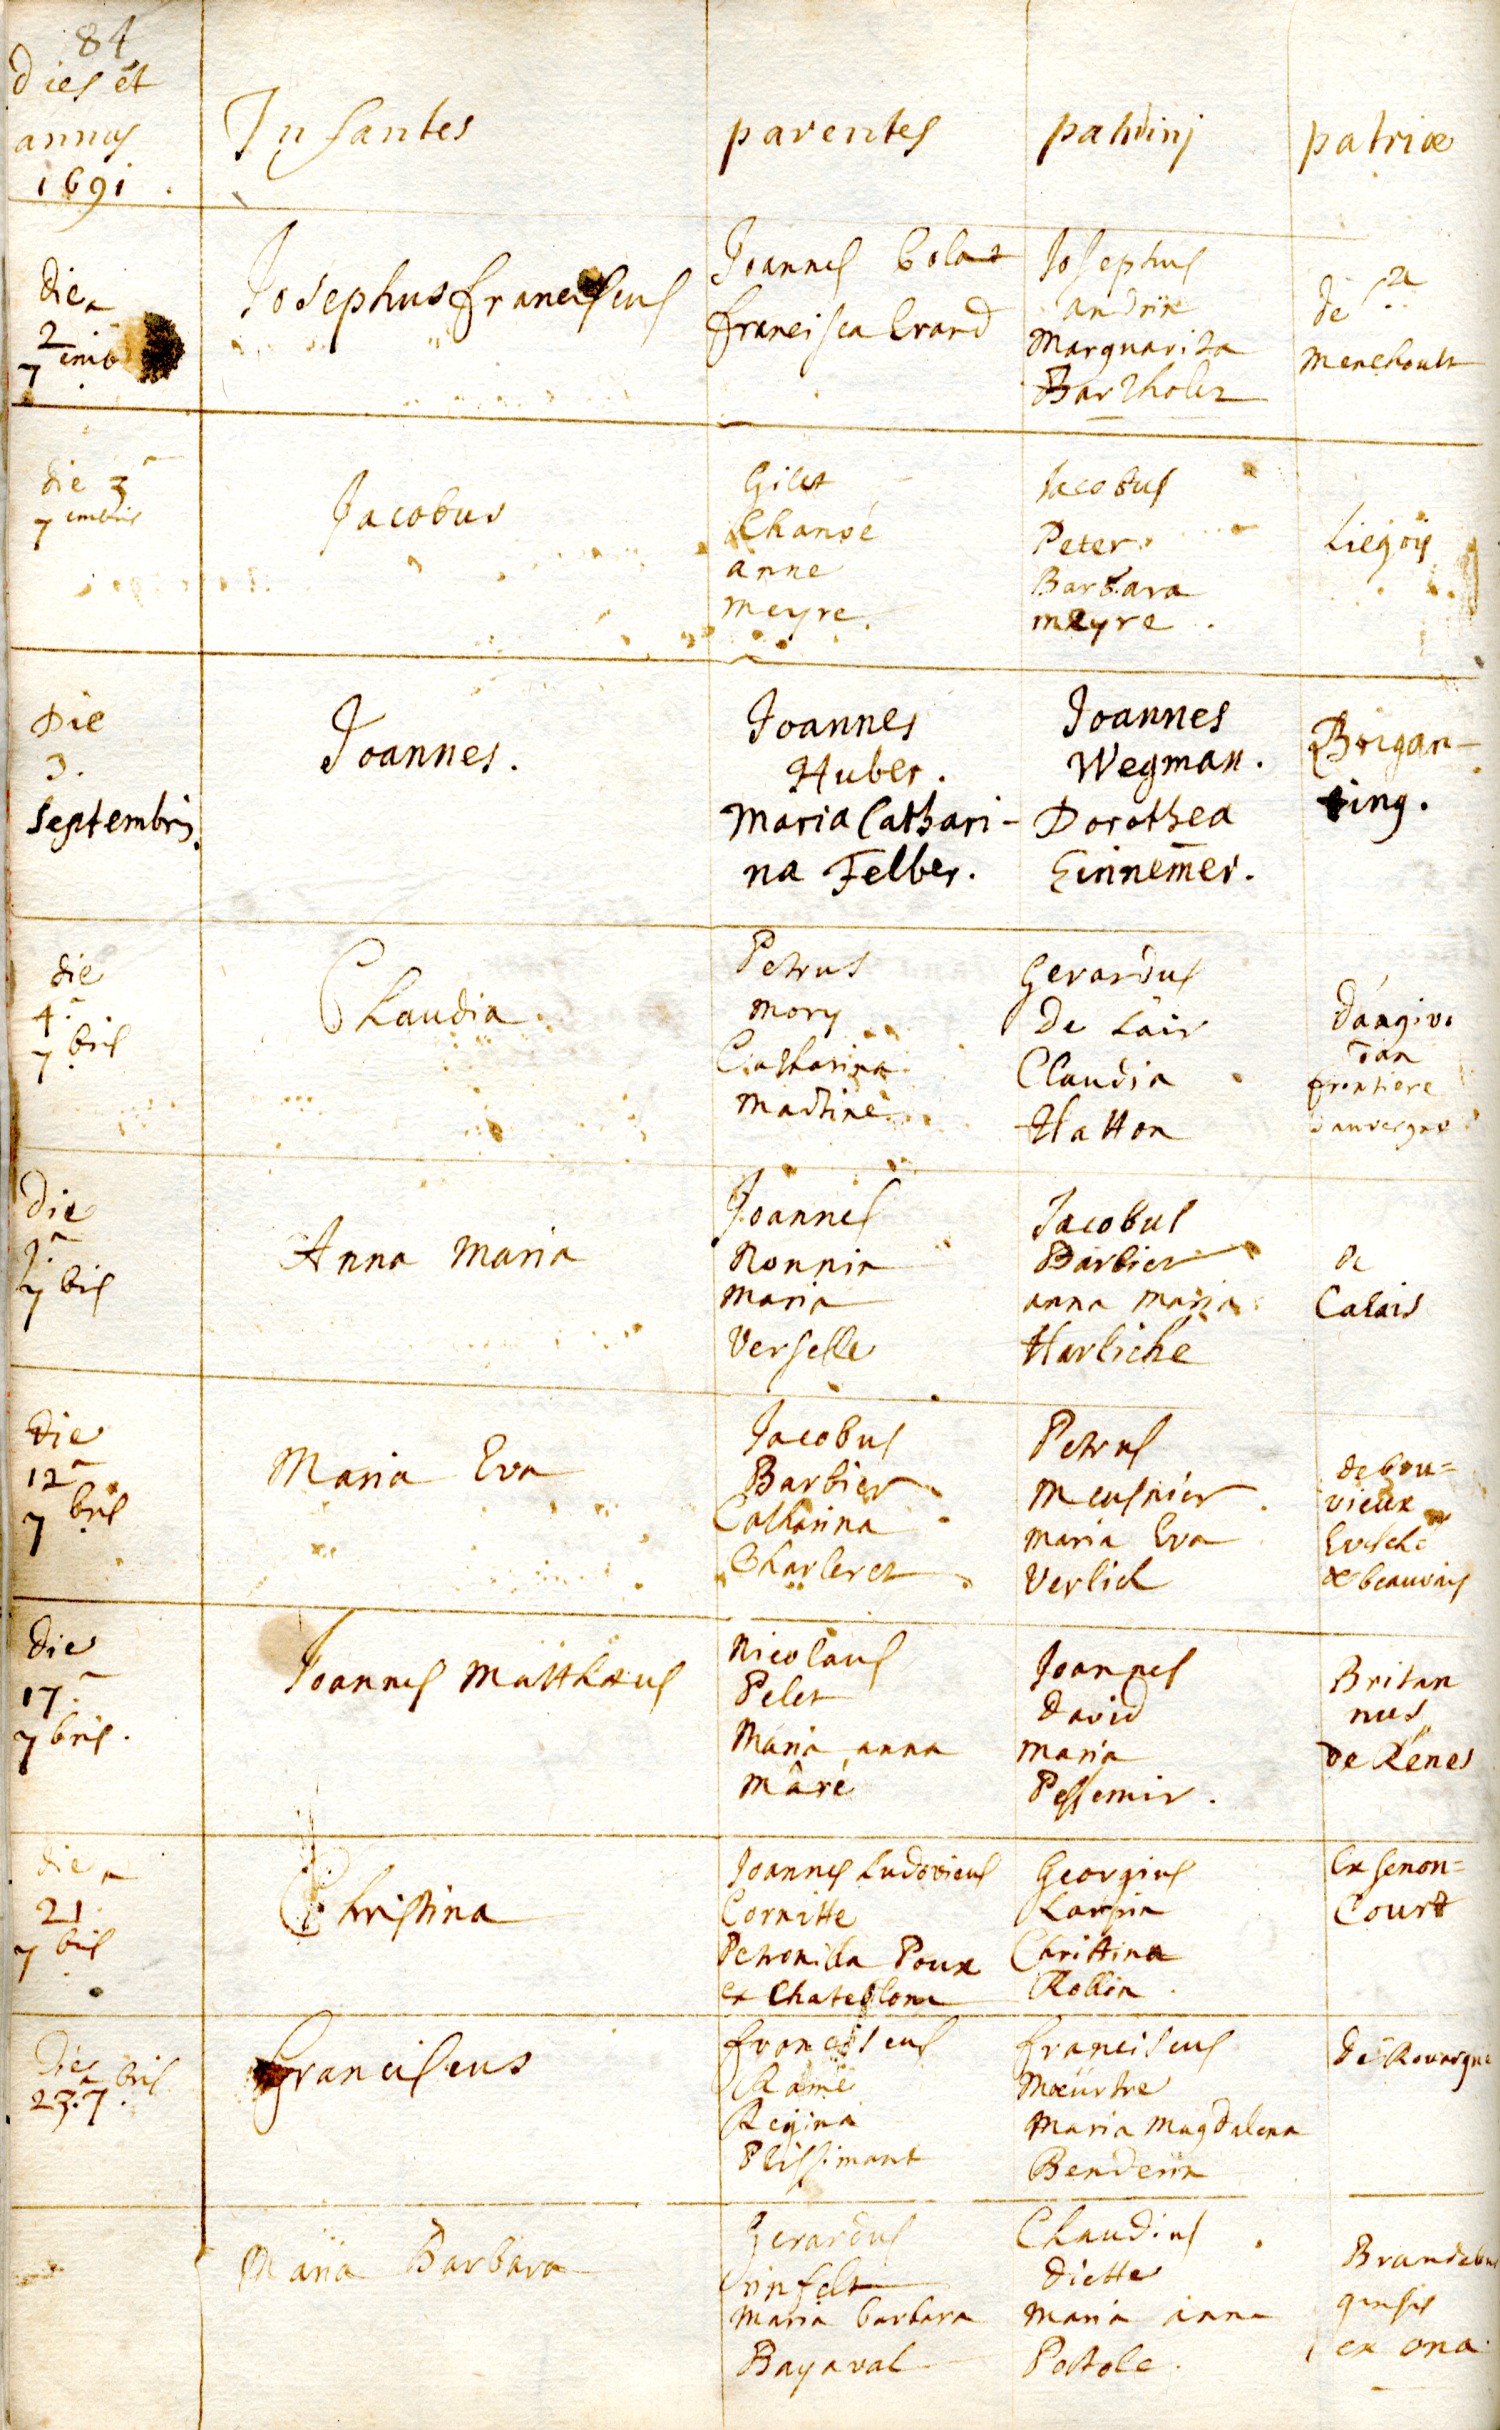 84
dies et
annus
1691.
Infantes
parentes
patrini
patriæ
die
2a
7embris
Josephus franciscus
Joannes Colat
francisca Erard
Josephus
andrin
Marguarita
Barthole
de Sa
Menehoult
die 3a
7embris
Jacobus
Gilet
Chansé
anne
meyre.
Jacobus
Peter
Barbara
meyre.
Liegois
Die
3.
Septembris.
Joannes.
Joannes
Huber.
Maria Cathari-
na Felber.
Joannes
Wegman.
Dorothea
Einnem̄er.
Brigan-
ting.
die
4a
7bris
Claudia.
Petrus
mory
Catharina
Martine
Gerardus
De Lair
Claudia
Hatton
frontiere
d'auvergne
die
7bris
Anna Maria
Joannes
Ronnin
Maria
Verselle
Jacobus
Barbier
anna maria
Harliche
de
Calais
die
12a
7bris
Maria Eva
Jacobus
Barbier
Catharina
Charleret
Petrus
Meusnier.
maria Eva
Verlich
de bou=
vieux
Evesché
de beauvais
die
17a
7bris.
Joannes Matthæus
Nicolaus
Pelet
Maria anna
Mâré
Joannes
David
maria
Pessemir.
Britan
nus
de Renes
die
21a
7bris
Christina
Joannes Ludovicus
Cornitte
Petronilla Poux
ex
Georgius
Christina
Robin.
Ex Senon=
Court
Die
23a 7bris
Franciscus
franciscus
Ramé
Regina
Plissimant
franciscus
Mœurtre
Maria Magdalena
Benderin
de Rouergue
Maria Barbara
Gerardus
Maria barbara
Bayaval
Claudius
Diette
maria anna
Postole.
Brandebur
gensis
ex ona.